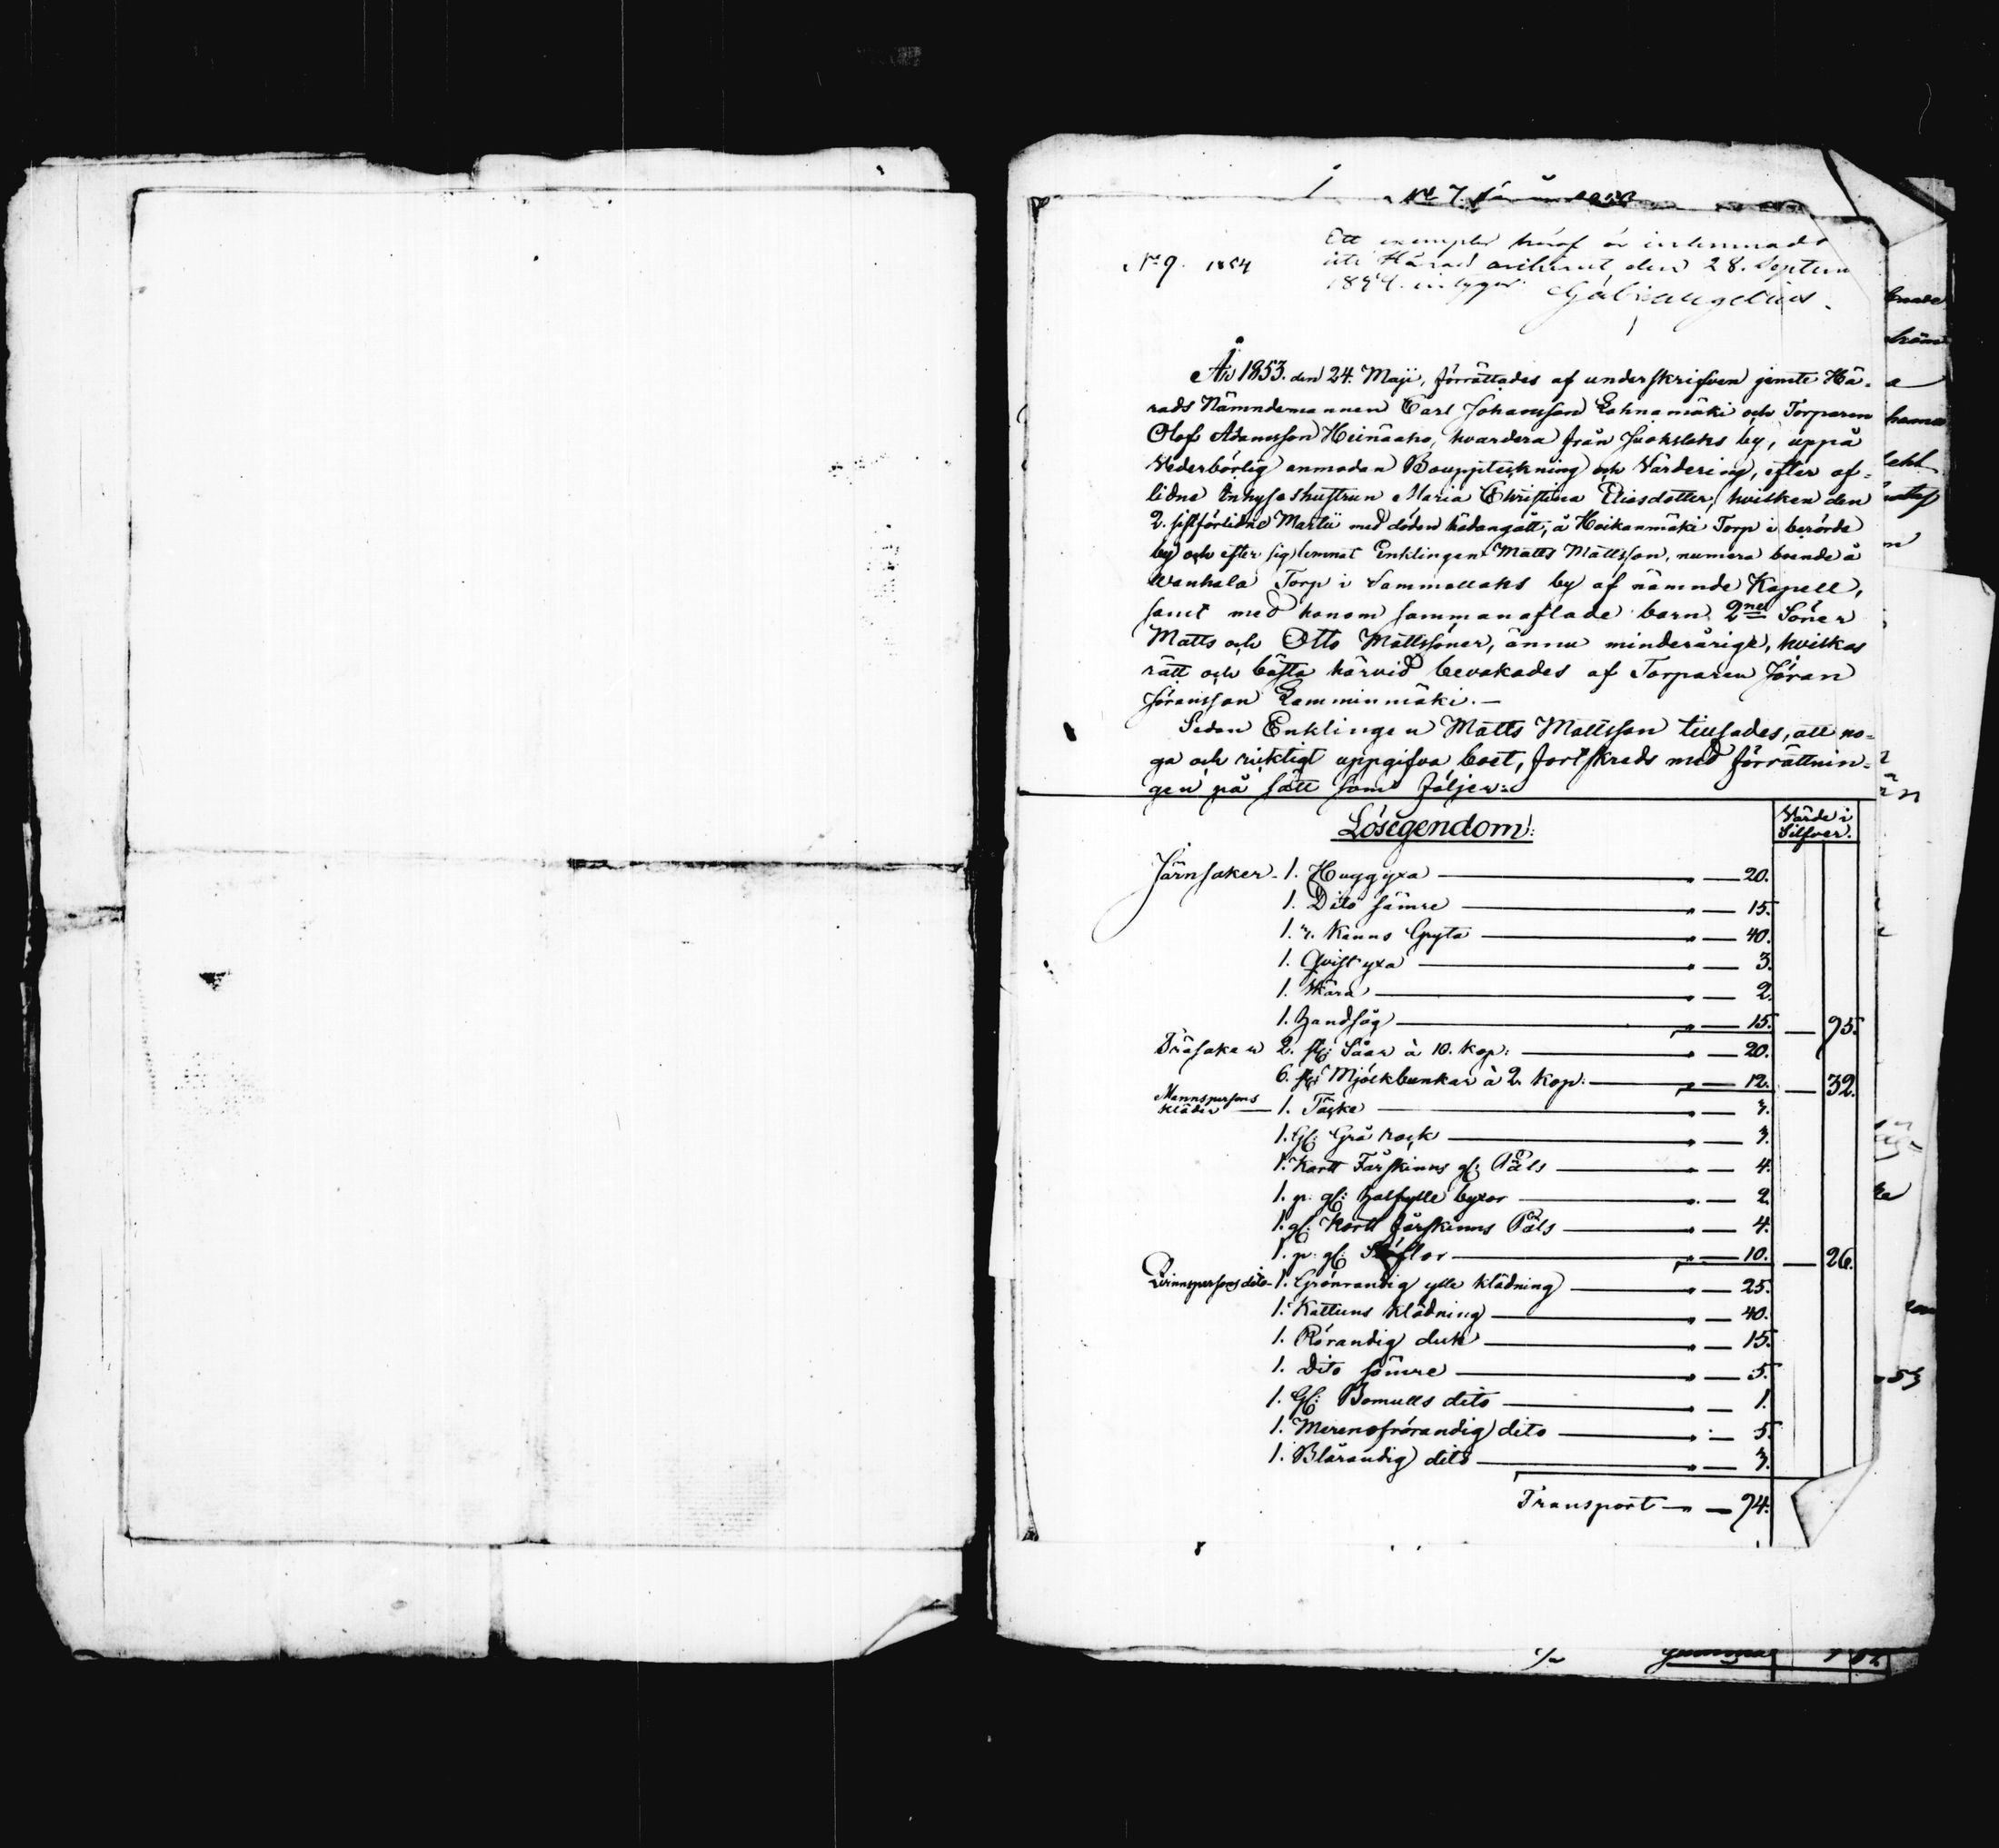 Ett exemplar häraf är inlemnadt
uti Härads arkivut, den 28. Septem
No 9. 1854
1854. intygar
År 1853. den 24. Maji, förrättades af underskrifven jemte Hä-
rads Nämndemannen Carl Johansson Lahnamäki och Torparen
Olof Adamsson Heinäaho, hvardera från Juoksloks by, uppå
Vederbörlig anmodan Bouppteckning och Värdering, efter af-
lidne Inhyseshustrun Maria Christina Eliasdotter, hvilken den
2. sistförlidne Martii med döden hädangått, å Hoikanmäki Torp i berörde
by och efter sig lemnat Enklingen Matts Mattsson, numera boende å
Wanhala Torp i Sammallaks by af nämnde Kapell,
samt med honom sammanaflade barn, 2ne Söner
Matts och Otto Mattssöner, ännu minderårige, hvilkas
rätt och bästa härvid bevakades af Torparen Jöran
Jöransson Lamminmäki. —
Sedan Enklingen Matts Mattsson tillsades, att no-
ga och ricktigt uppgifva boet, fortskreds med förrättnin-
gen på sätt som följer:
Lösegendom:
Värde i
Silfver.
Järnsaker - 1. Huggyxa — 20.
1. Dito sämre — 15.
1. 3. Kanns Gryta — 40.
1. Qvistyxa — 3.
1. Skära — 2.
1. Handsåg — 15. — 95.
Träsaker 2. st: Såar à 10. kop: — 20.
6. st: Mjölkbunkar à 2. kop: — 12. — 32.
Mannspersons
kläder — 1. Täcke — 3.
1. Gl: Grå rock — 3.
1. Kort Fårskinns gl: Päls — 4.
1. p. gl: halfylle byxor — 2.
1. gl: Kort fårskinns Päls — 4.
1. p: gl: Stöflor — 10. — 26.
Qvinnspersons dito - 1. Grönrandig ylle klädning — 25.
1. Kattuns klädning — 40.
1. Rörandig duk — 15.
1. Dito sämre — 5.
1. Gl: Bomulls dito — 1.
1. Merenos rörandig dito — 5.
1. Blårandig dito — 3.
Transport — 94.
Summa